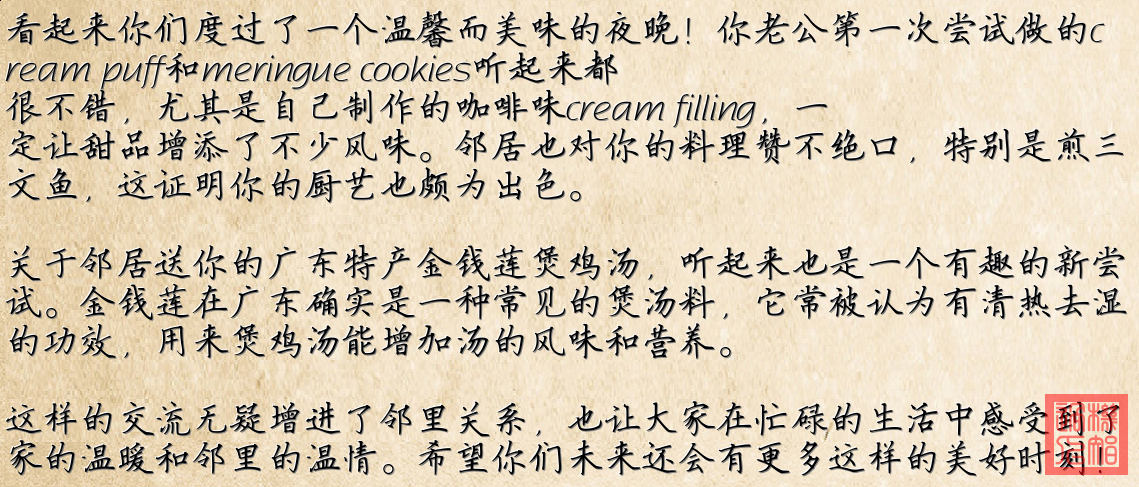 看起来你们度过了一个温馨而美味的夜晚！你老公第一次尝试做的c
ream puff和meringue cookies听起来都
很不错，尤其是自己制作的咖啡味cream filling，一
定让甜品增添了不少风味。邻居也对你的料理赞不绝口，特别是煎三
文鱼，这证明你的厨艺也颇为出色。
关于邻居送你的广东特产金钱莲煲鸡汤，听起来也是一个有趣的新尝
试。金钱莲在广东确实是一种常见的煲汤料，它常被认为有清热去湿
的功效，用来煲鸡汤能增加汤的风味和营养。
这样的交流无疑增进了邻里关系，也让大家在忙碌的生活中感受到了
家的温暖和邻里的温情。希望你们未来还会有更多这样的美好时刻！